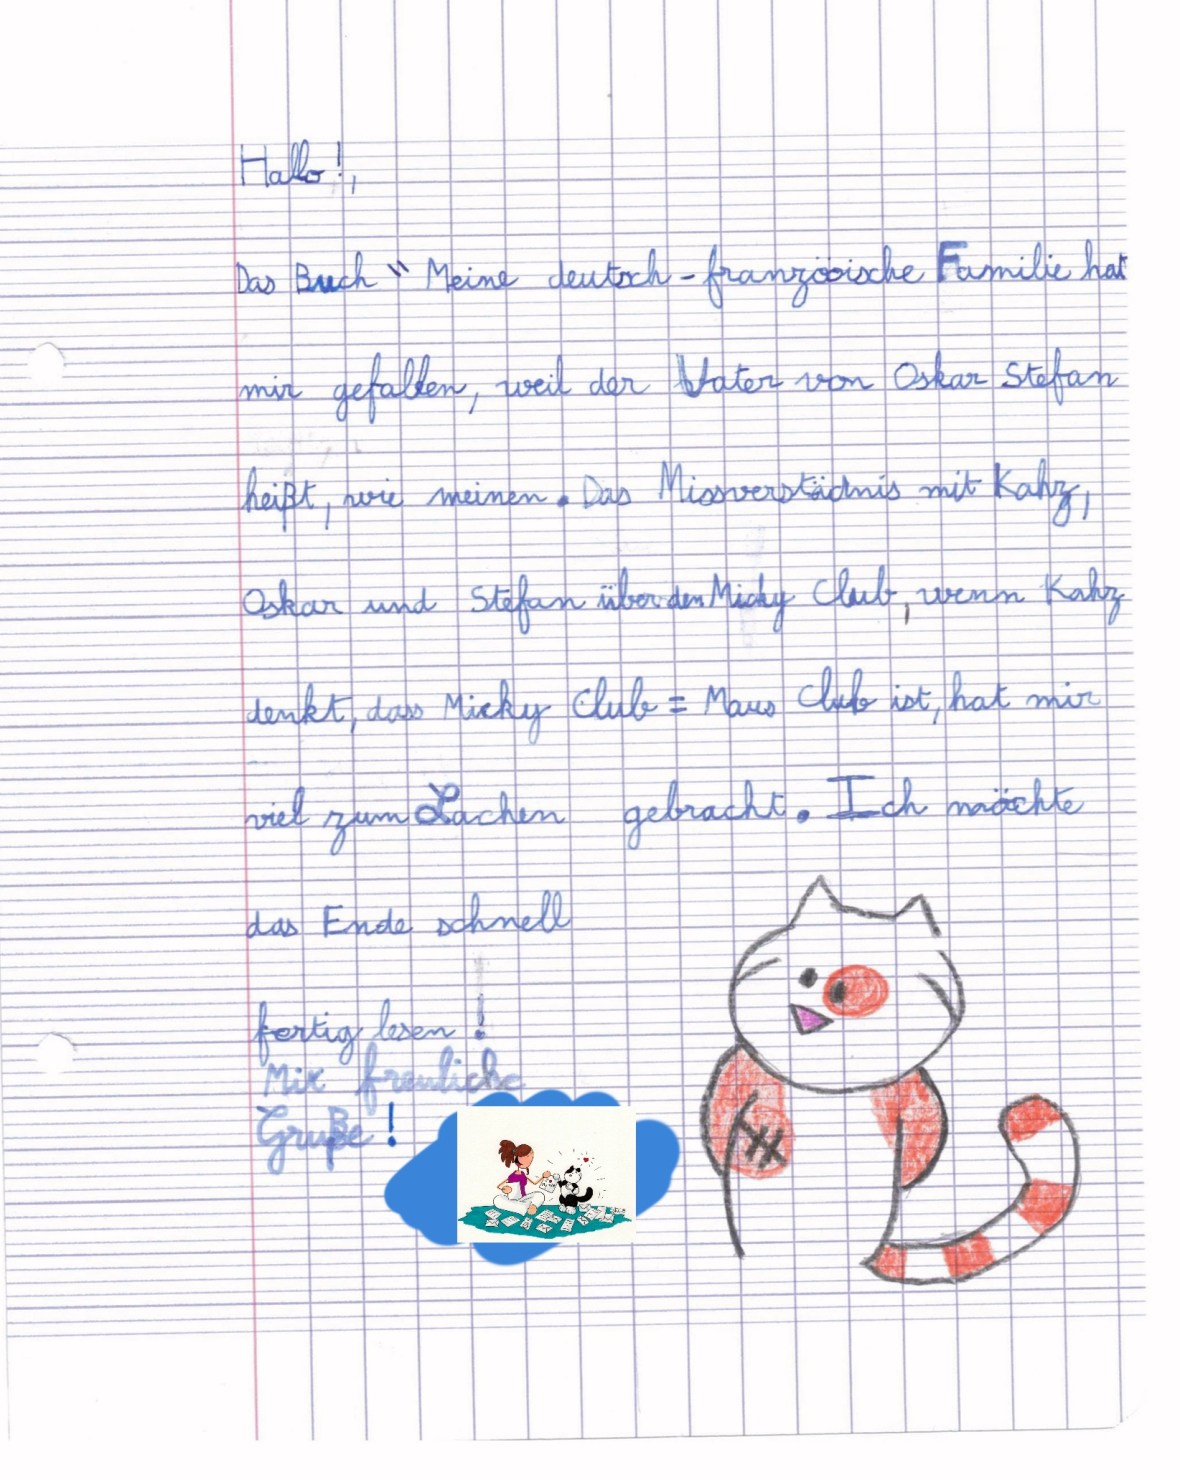 Hallo!,
Das Buch " Meine deutsch-französische Familie hat
mir gefallen, weil der Vater von Oskar Stefan
heißt, wie meinen. Das Missverstädnis mit Kahz,
Oskar und Stefan über den Micky Club, wenn Kahz
denkt, dass Micky Club = Maus Club ist, hat mir
viel zum Lachen gebracht. Ich möchte
das Ende schnell
fertig lesen !
Mix freuliche
Gruße !